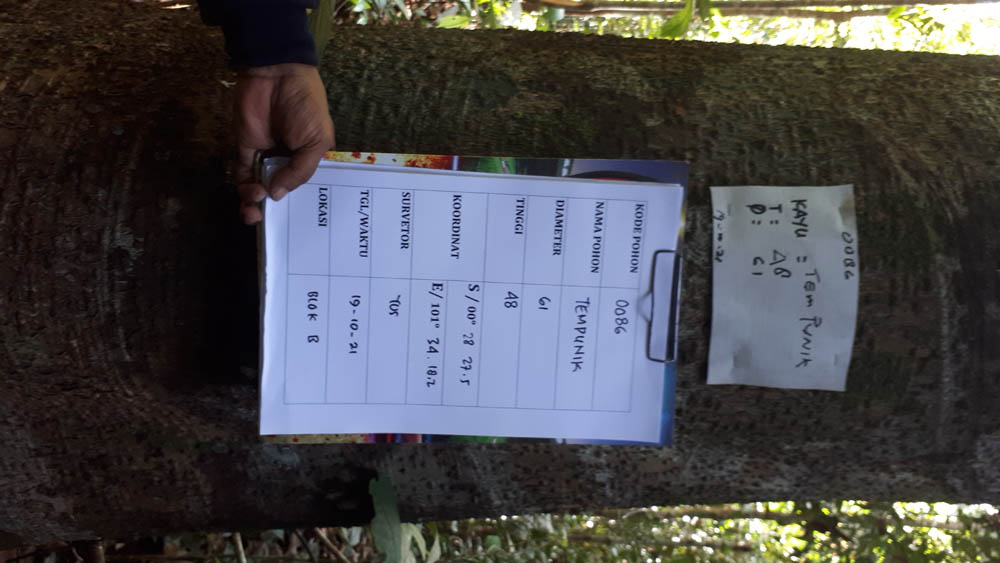 0086
KAYU = TEMPUNIK
T: 48
Ø: 61
19-10-21
KODE POHON 0086
NAMA POHON TEMPUNIK
DIAMETER 61
TINGGI 48
KOORDINAT S / 00° 28 27.5
E/ 101° 34. 18.2
SURVETOR YUS
TGL/WAKTU 19-10-21
LOKASI BLOK B